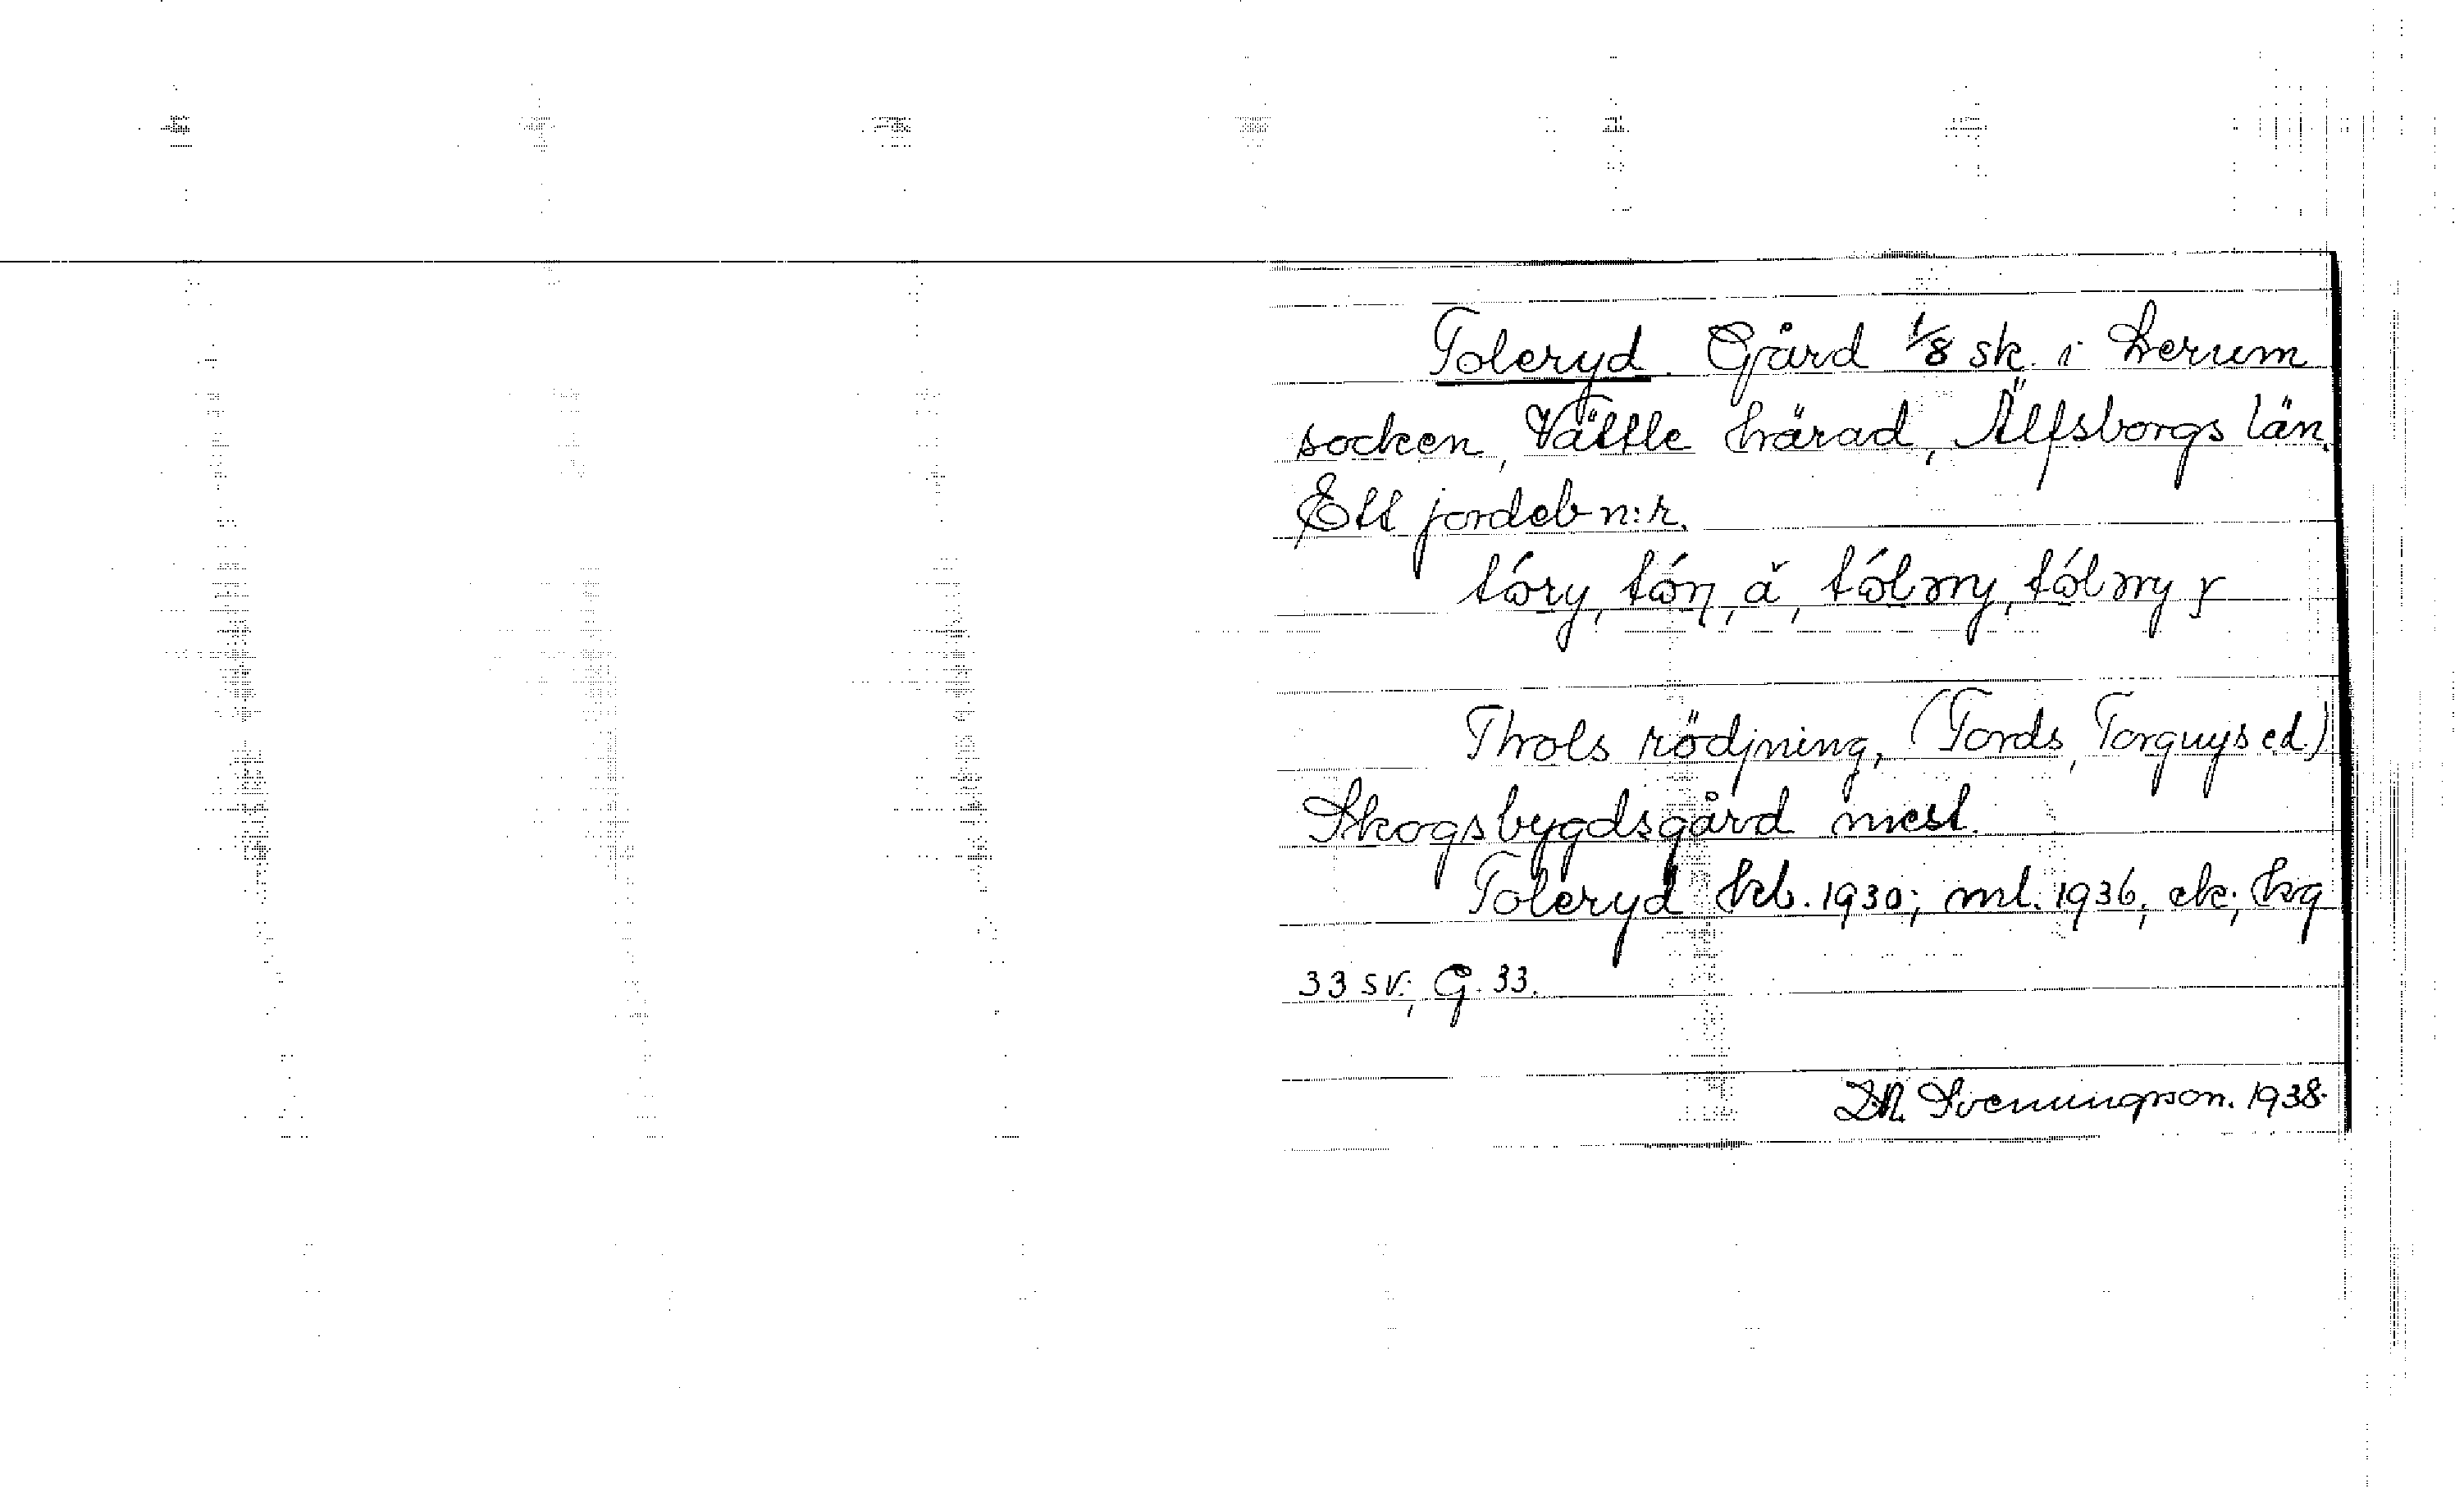 Toleryd. Gård 1/8 sk. i Lerum
socken, Vättle härad, Älfsborgs län.
Ett jordeb n:r.
tóry, tóη, ă, tóləry, tóləry
Throls rödjning, (Tords, Torguys ed.)
Skogsbygdsgård mest.
Toleryd kb. 1930; ml. 1936, ek; hrg
33 sv; G. 33.
D.A. Svenningson. 1938.